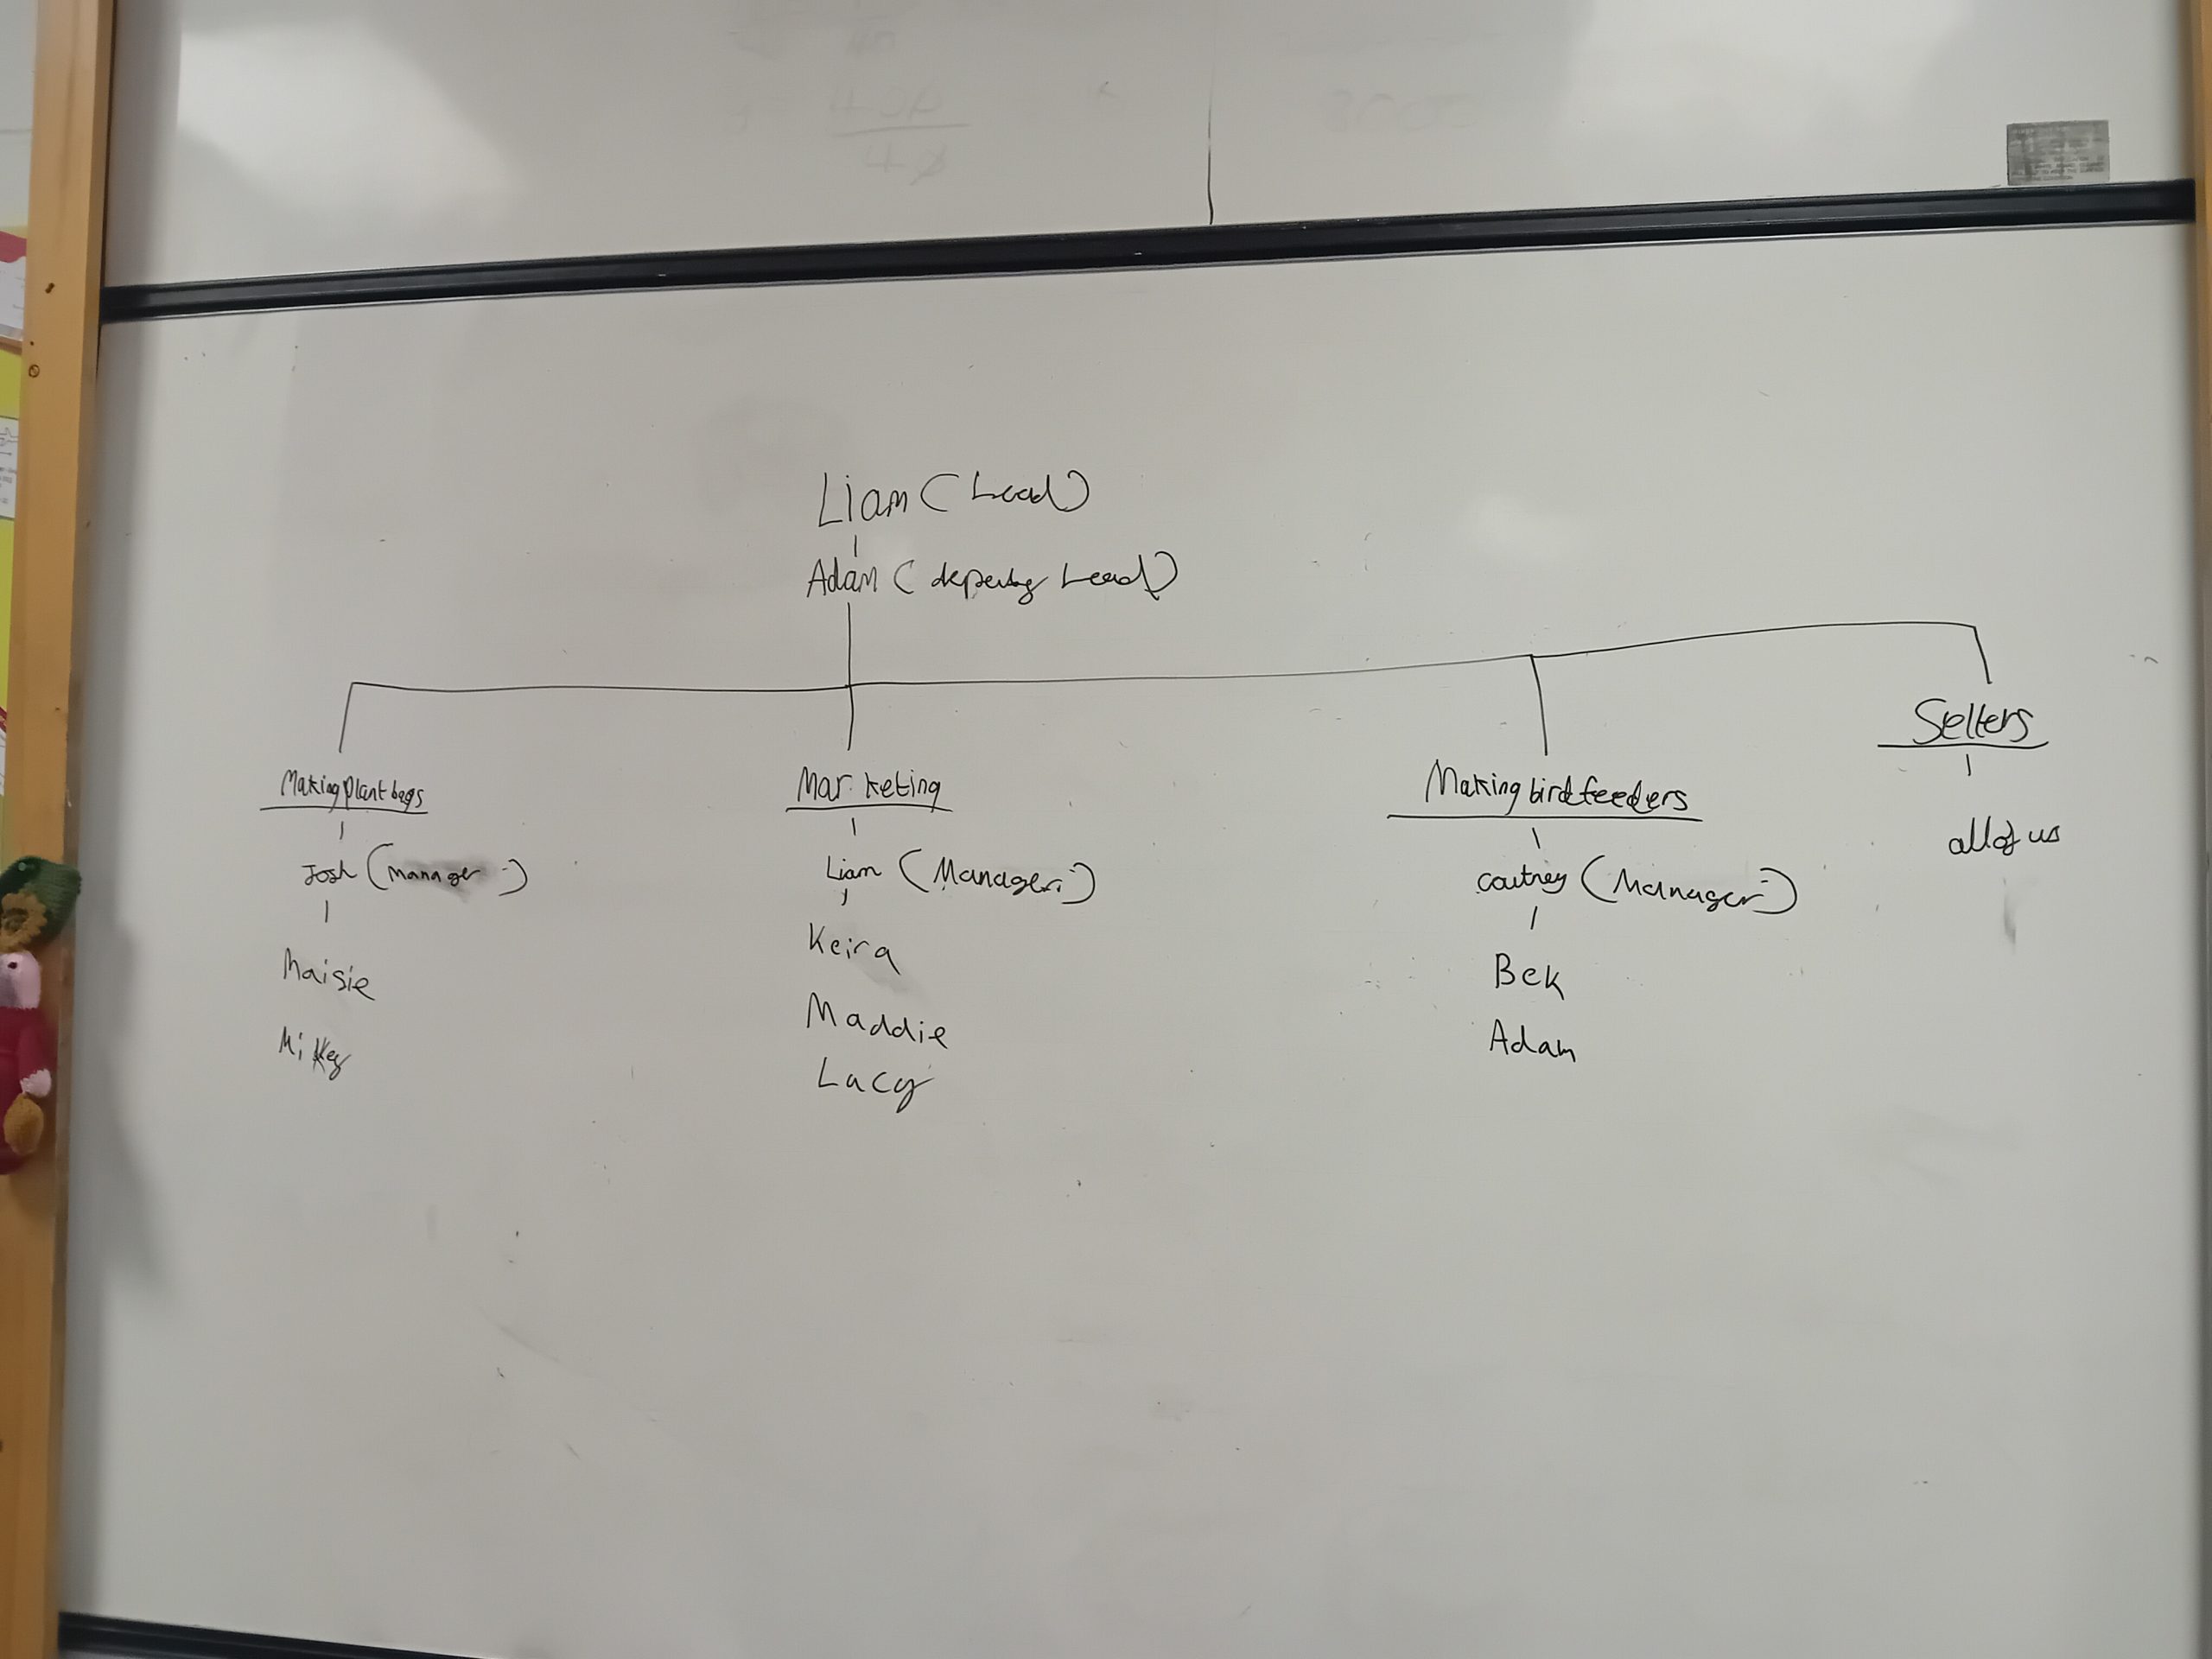 Liam (Lead)
Adam (deputey Lead)
Making plant bags
Josh (manager)
Maisie
Mikey
Marketing
Liam (Manager)
Keira
Maddie
Lacy
Making bird feeders
Coutney (Manager)
Bek
Adam
Sellers
all of us